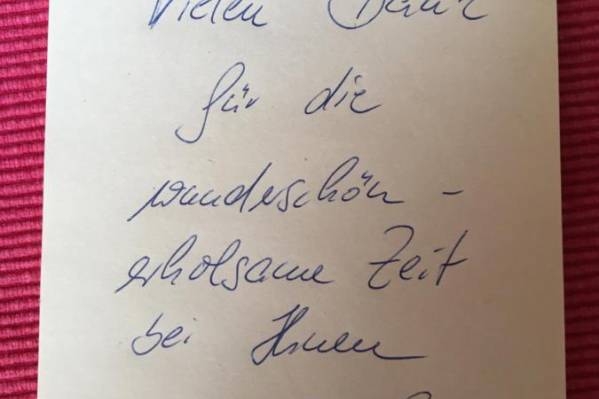 Vielen Dank
für die
wundeschön -
erholsame Zeit
bei Ihnen